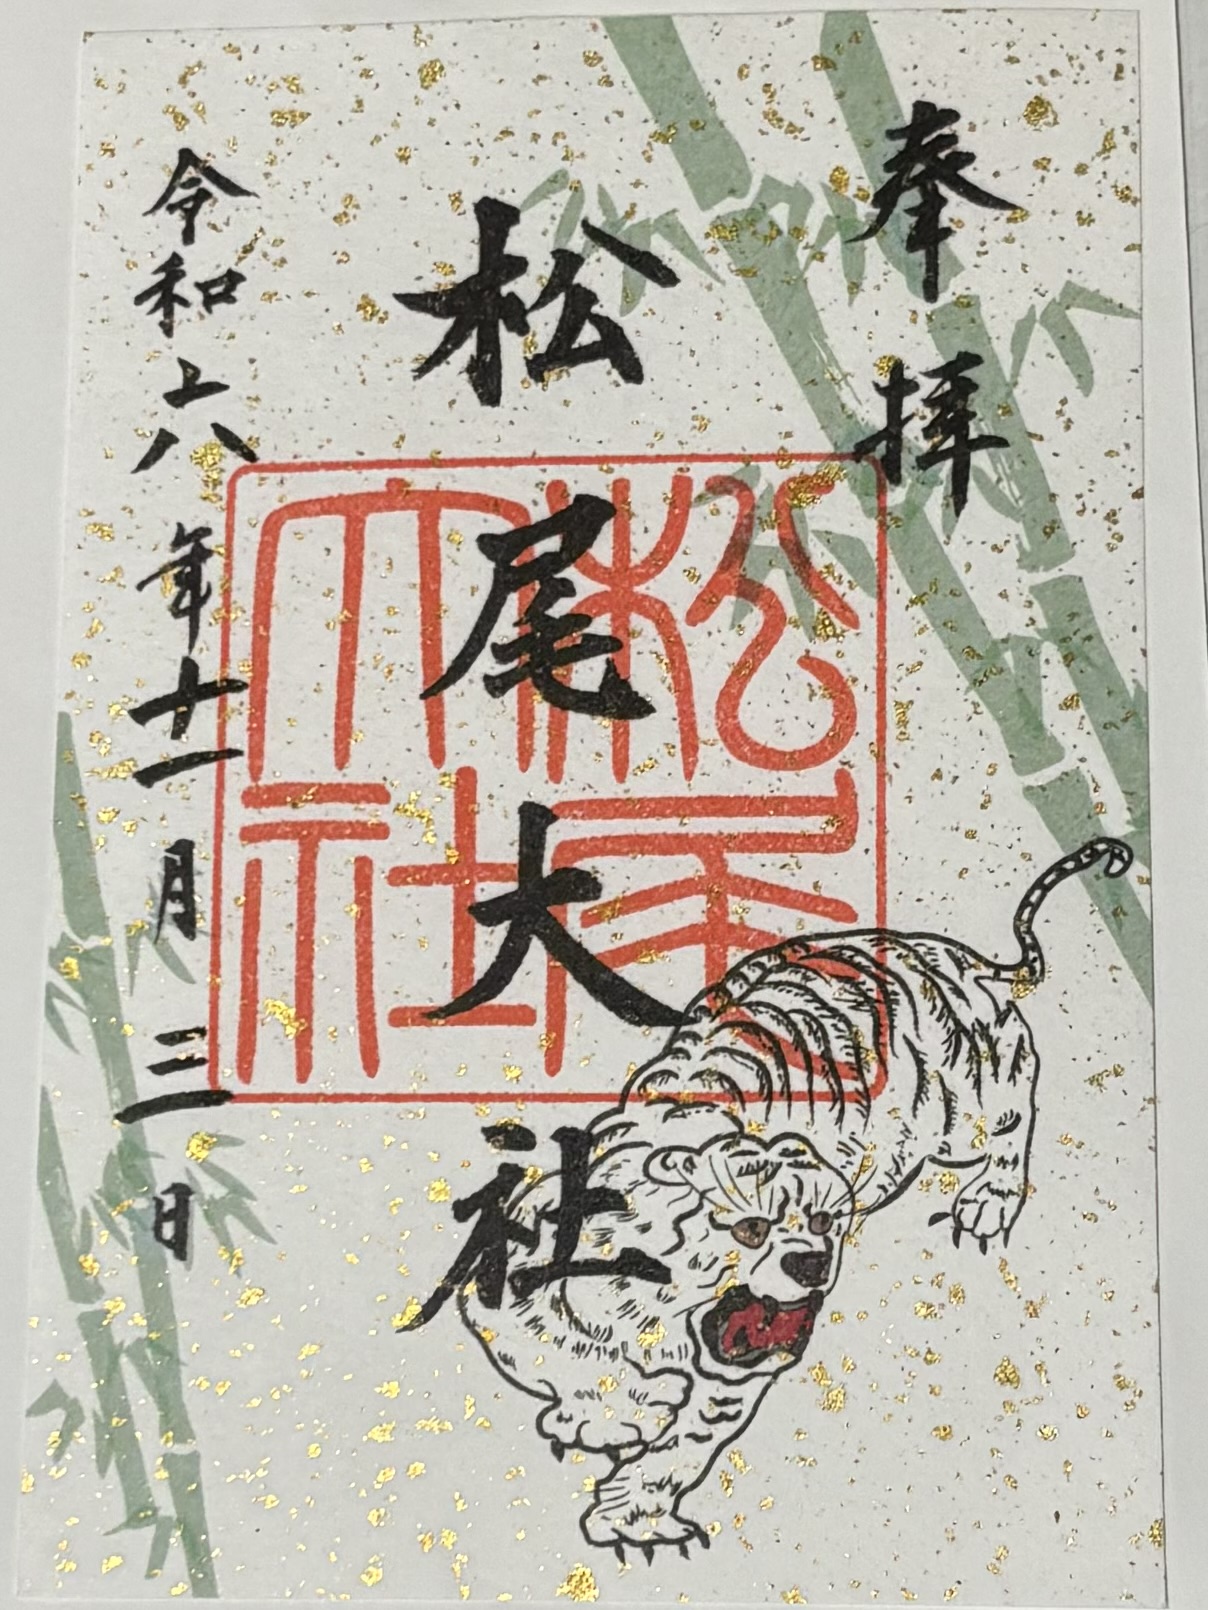 奉拝
松尾大社
松尾大社
令和六年十一月三日